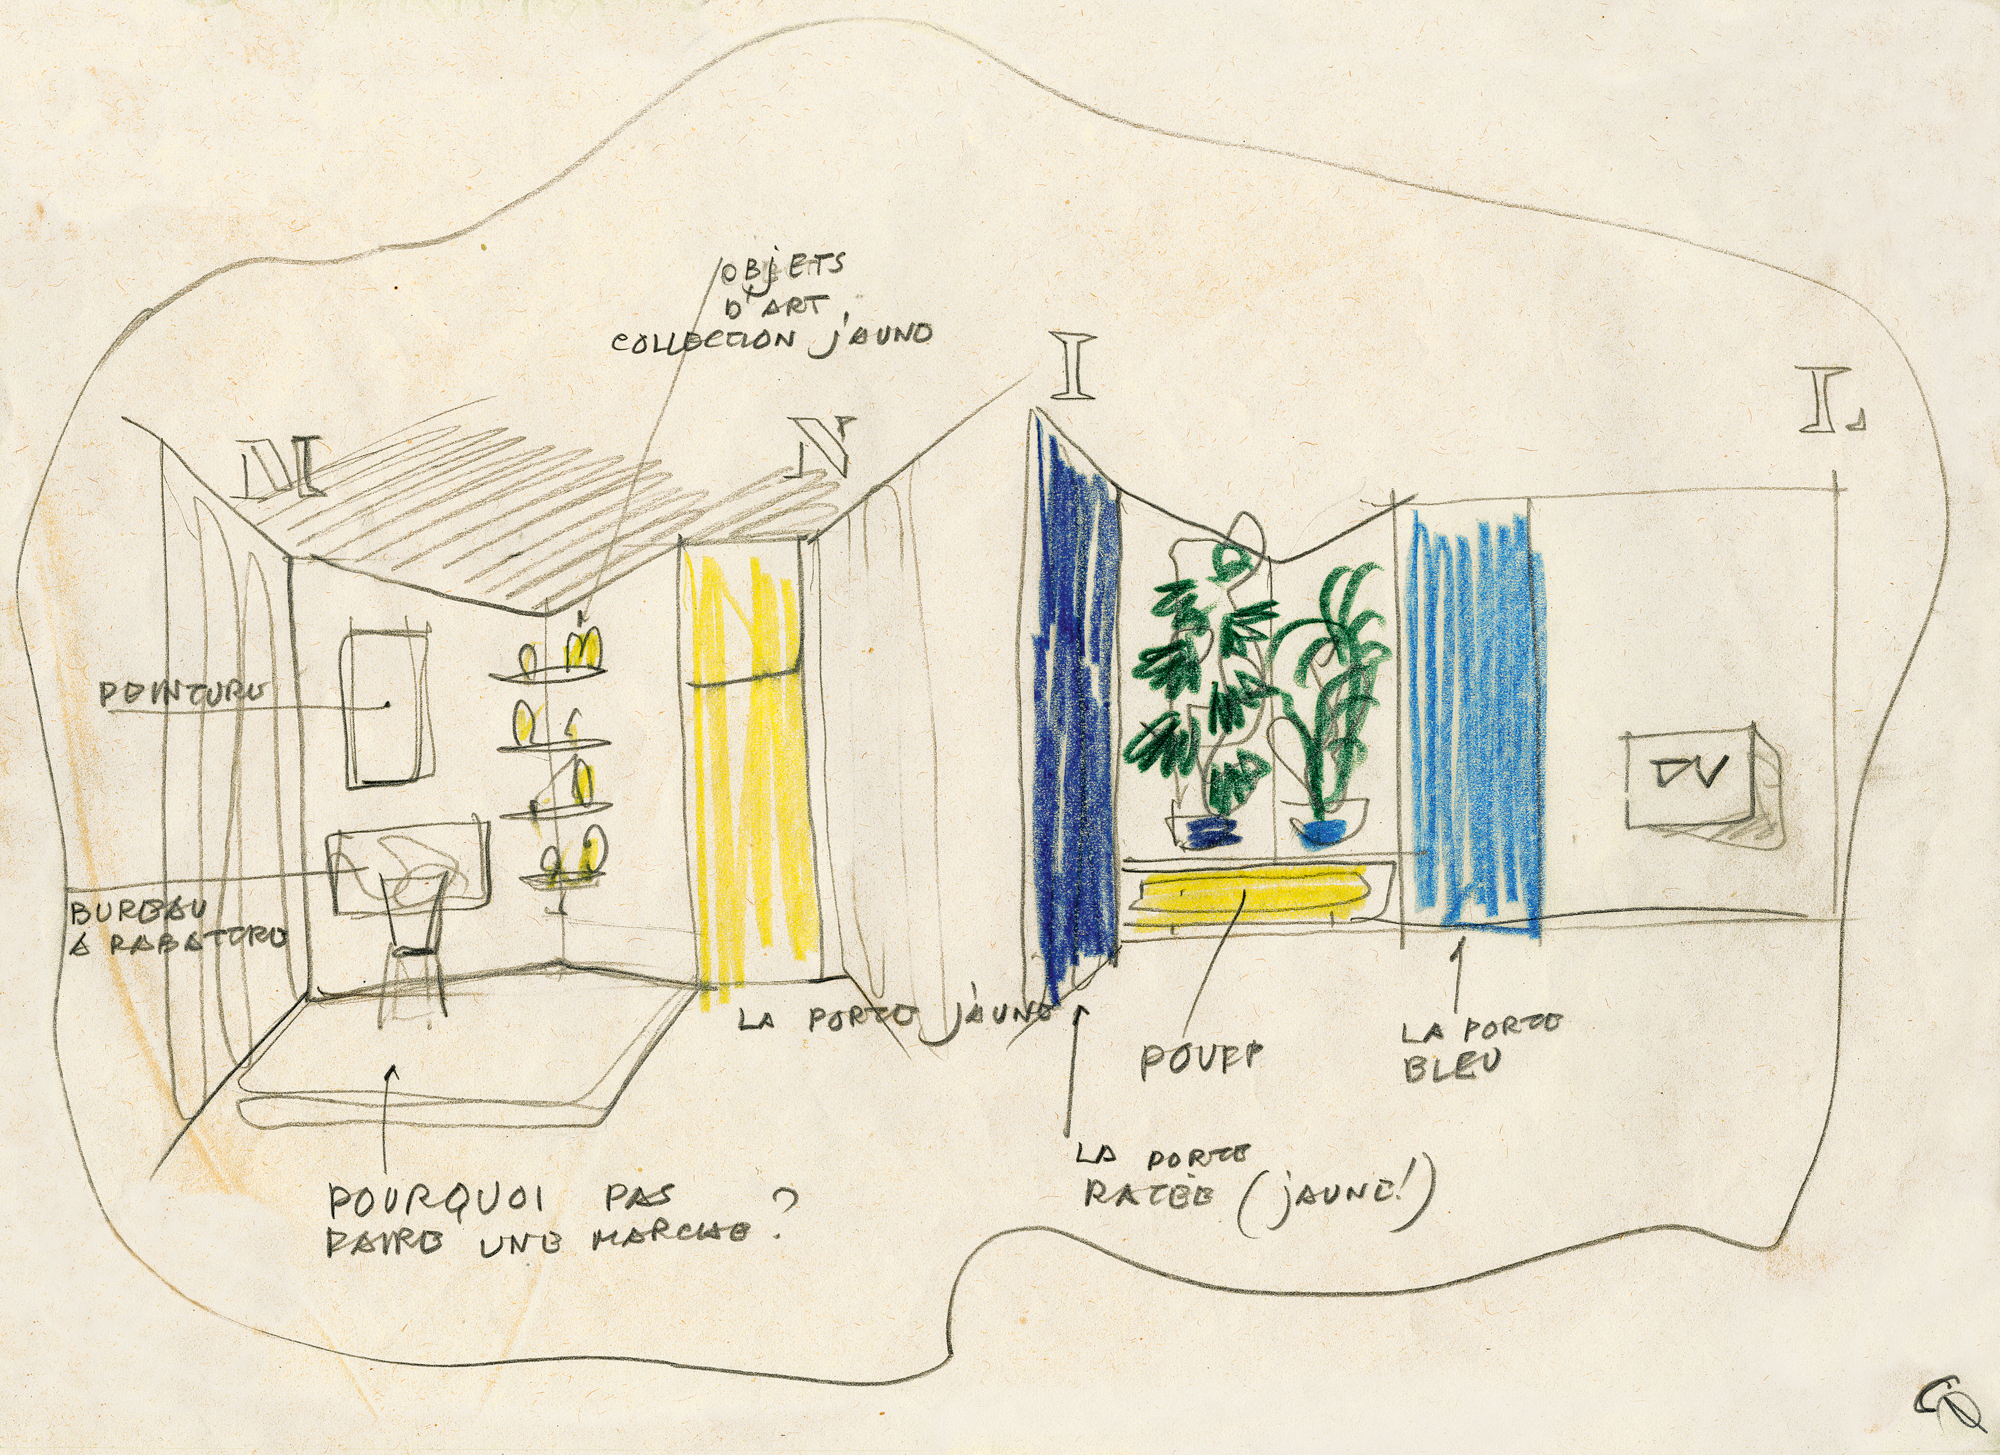 OBjETS
D'ART,
COLLECTION jAUNE
M
N
I
L
PEINTURE
DV
BUREAU
A RABATTRE
LA PORTE jAUNE
POUFF
LA PORTE
BLEU
LA PORTE
RATÉE (jAUNE!)
POURQUOI PAS
FAIRE UNE MARCHE ?